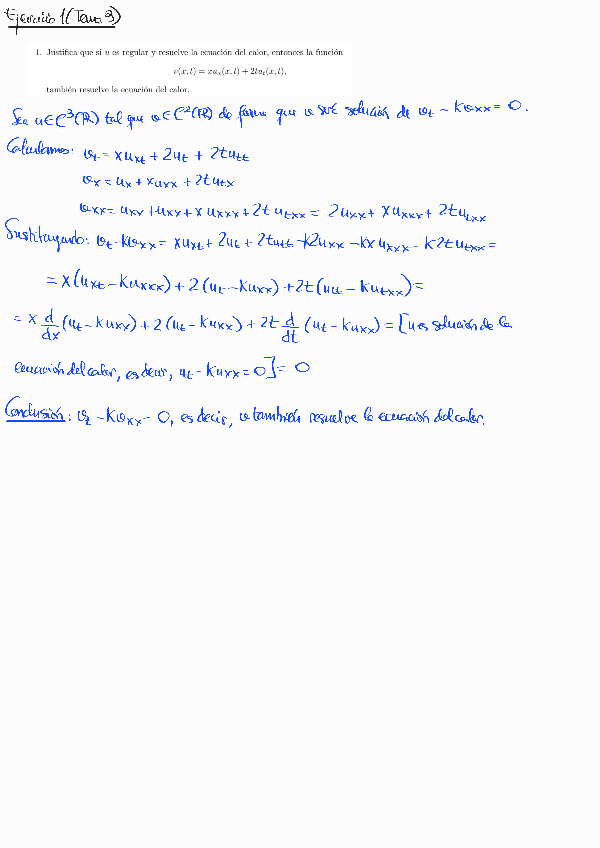 Ejercicio 1 (Tema 3)
1. Justifica que si u es regular y resuelve la ecuación del calor, entonces la función
v(x, t) = xuₓ(x, t) + 2tuₜ(x, t),
también resuelve la ecuación del calor.
Sea u∈C³(R) tal que v∈C²(R) de forma que v será solución de vt - Kvxx = 0.
Calculamos: vt = xuxt + 2ut + 2tutt
vx = ux + xuxx + 2tutx
vxx = uxx + uxx + xuxxx + 2tutxx = 2uxx + xuxxx + 2tutxx
Sustituyendo: vt - Kvxx = xuxt + 2ut + 2tutt - K2uxx - Kxuxxx - K2tutxx =
= x(uxt - Kuxxx) + 2(ut - Kuxx) + 2t(utt - Kutxx) =
= x d/dx (ut - Kuxx) + 2(ut - Kuxx) + 2t d/dt (ut - Kuxx) = [u es solución de la
ecuación del calor, es decir, ut - Kuxx = 0] = 0
Conclusión: vt - Kvxx = 0, es decir, v también resuelve la ecuación del calor.